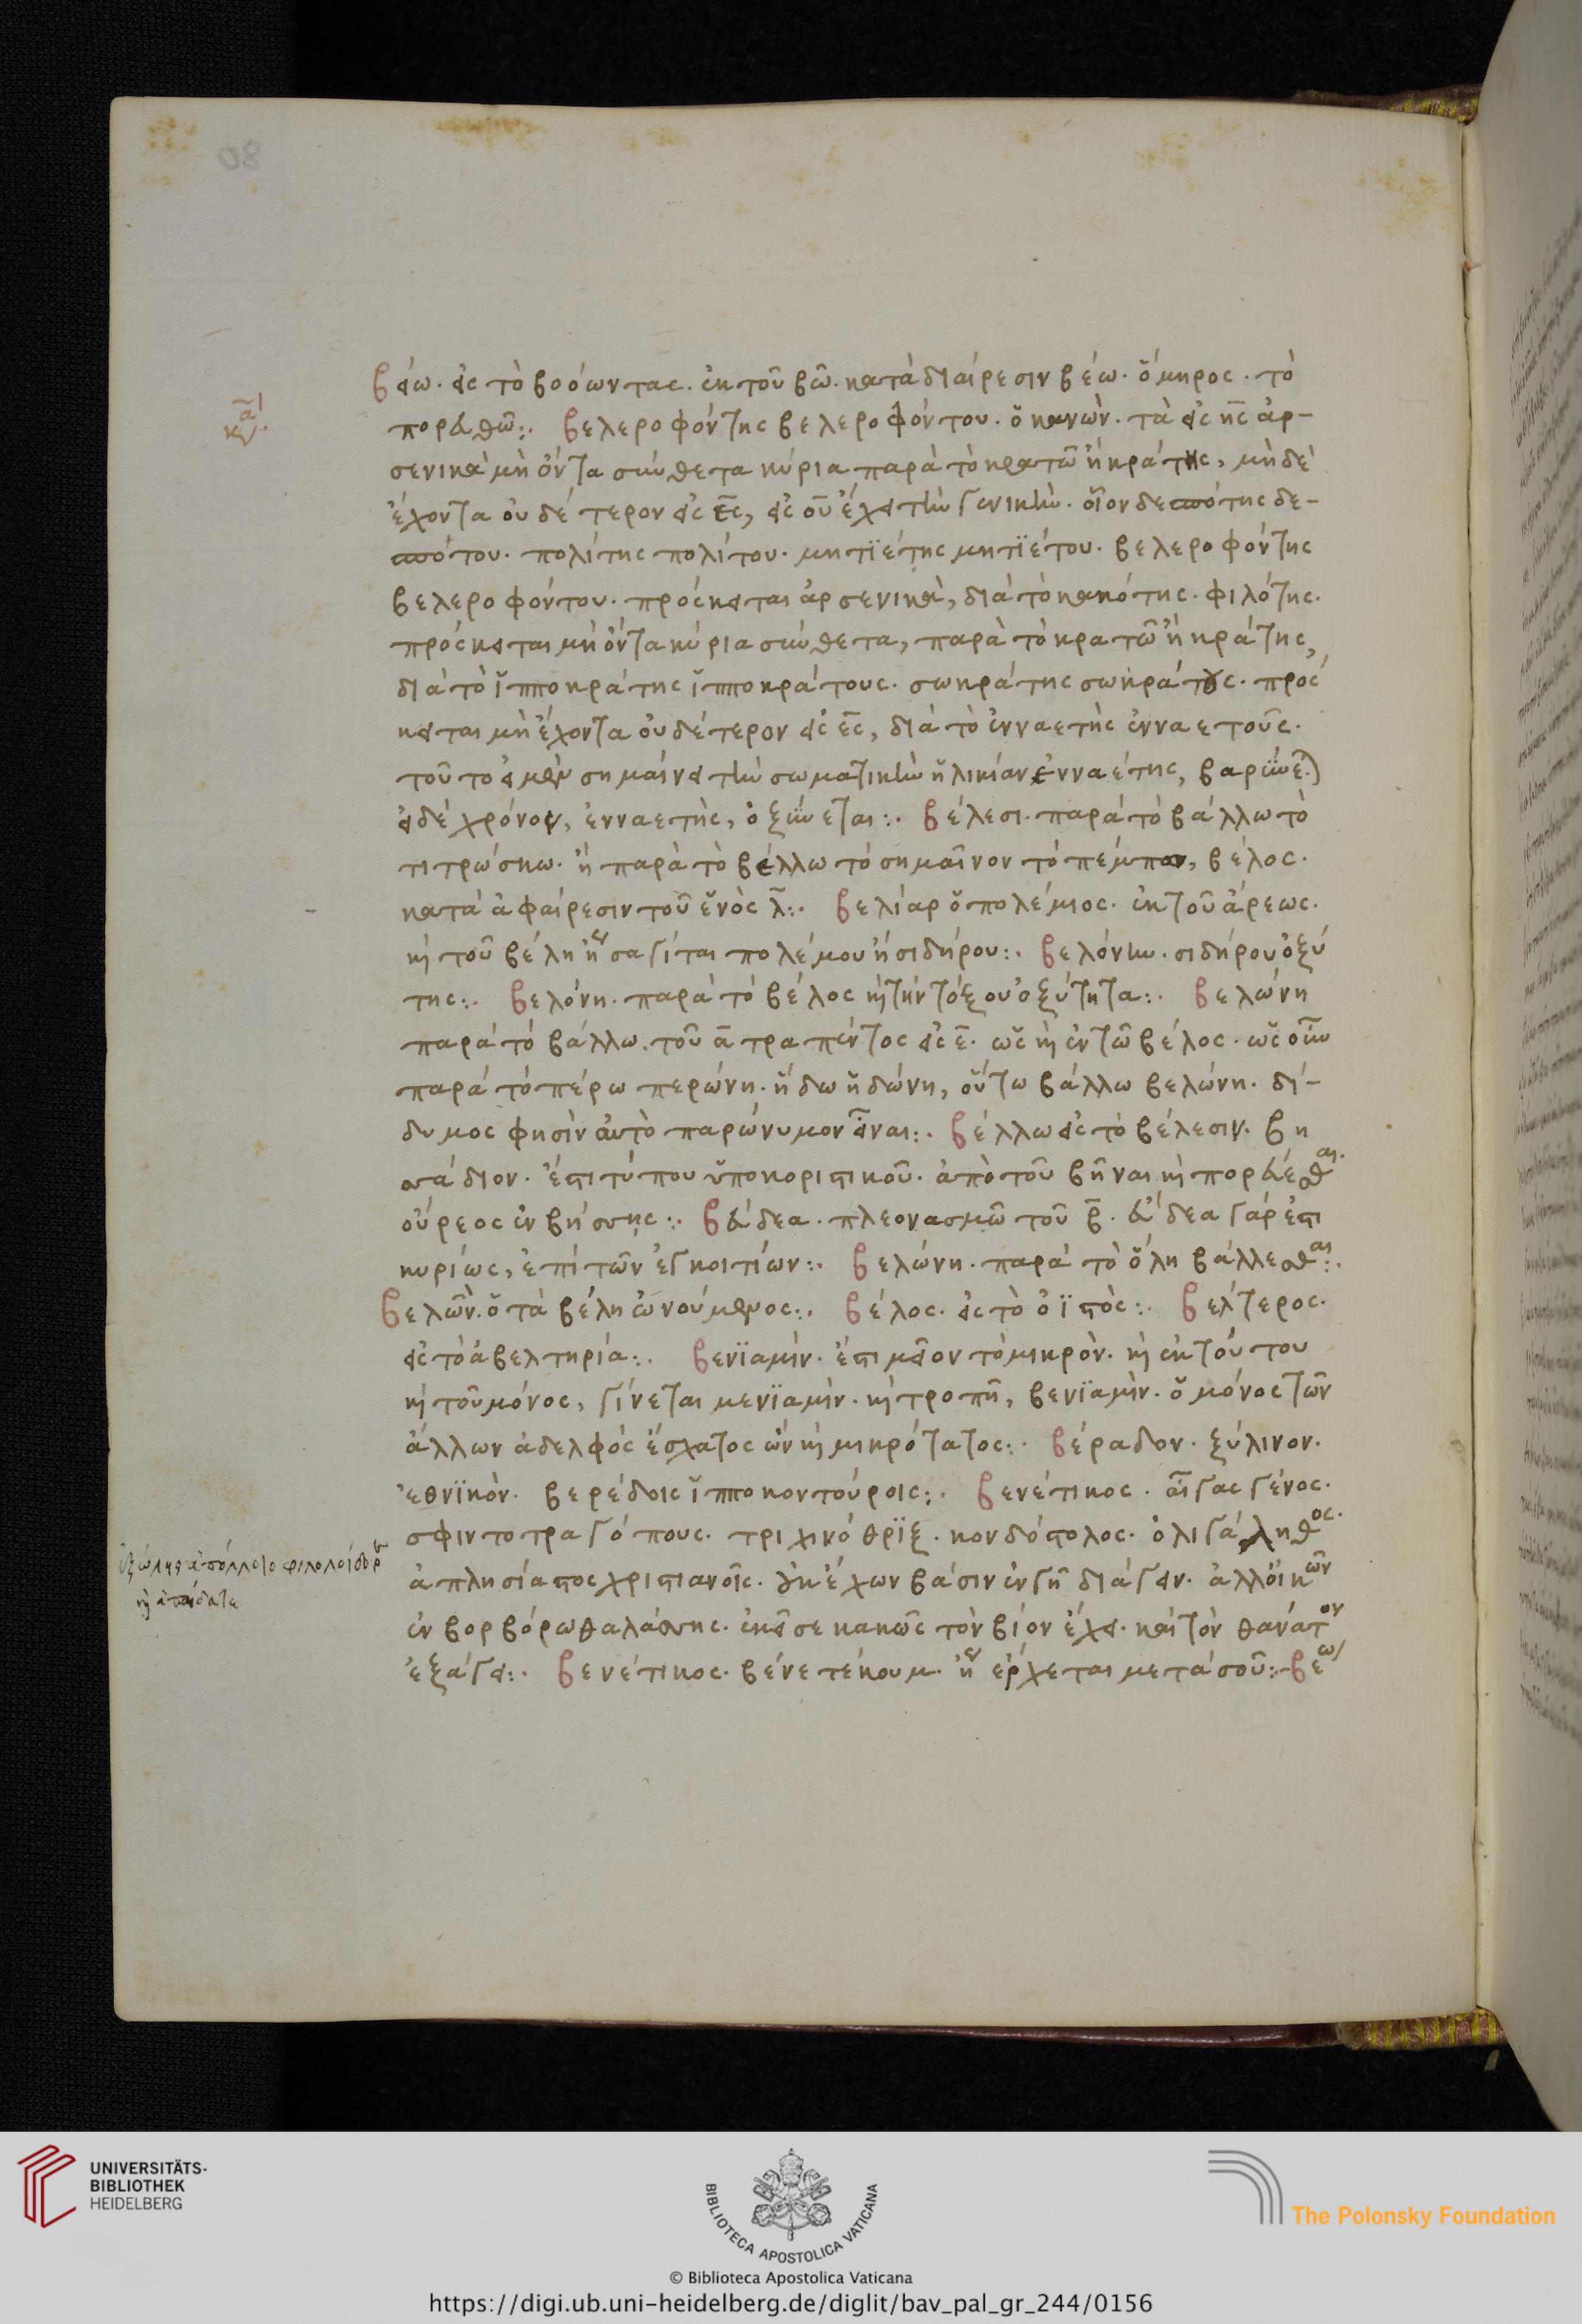 80
βείω. εἰς τὸ βοόωντας. ἐκ τοῦ βῶ. κατὰ διαίρεσιν βέω. ὅμηρος. τὸ
πορευθῶ:. βελεροφόντης βελεροφόντου. ὁ κανὼν. τὰ εἰς ης ἀρ-
σενικὰ μὴ ὄντα σύνθετα κύρια παρὰ τὸ κρατῶ ἢ κράτης, μὴ δὲ
ἔχοντα οὐδέτερον εἰς ες, εἰς ου ἔχει τὴν γενικὴν. οἷον δεσπότης δε-
σπότου. πολίτης πολίτου. μητϊέτης μητϊέτου. βελεροφόντης
βελεροφόντου. πρόσκειται ἀρσενικὰ, διὰ τὸ κακότης. φιλότης.
πρόσκειται μὴ ὄντα κύρια σύνθετα, παρὰ τὸ κρατῶ ἢ κράτης,
διὰ τὸ ἵπποκράτης ἵπποκράτους. σωκράτης σωκράτους. πρόσ
κειται μὴ ἔχοντα οὐδέτερον εἰς ες, διὰ τὸ ἐνναετὴς ἐνναετοῦς.
τοῦτο εἰ μὲν σημαίνει τὴν σωματικὴν ἡλικίαν ἐνναέτης, βαρύνε.)
εἰ δὲ χρόνον, ἐνναετὴς, ὀξύνεται:. βέλεσι. παρὰ τὸ βάλλω τὸ
τιτρώσκω. ἢ παρὰ τὸ βέλλω τὸ σημαῖνον τὸ πέμπειν, βέλος.
κατὰ ἀφαίρεσιν τοῦ ἑνὸς λ:. βελίαρ ὁ πολέμιος. ἐκ τοῦ ἄρεως.
κὶ τοῦ βέλη ἣν σαγίται πολέμου ἢ σιδήρου:. βελόνην. σιδήρου ὀξύ
της:. βελόνη. παρὰ τὸ βέλος κὶ τὴν τόξου ὀξύτητα:. βελώνη
παρὰ τὸ βάλλω. τοῦ α τραπέντος εἰς ε. ὡς κὶ ἐν τῶ βέλος. ὡς οὖν
παρὰ τὸ πέρω περώνη. ἥδω ἡδώνη, οὕτω βάλλω βελώνη. δί-
δυμος φησὶν αὐτὸ παρώνυμον εἶναι:. βέλλω εἰς τὸ βέλεσιν. βη
σάδιον. ἔστι τύπου ὑποκοριστικοῦ. ἀπὸ τοῦ βῆναι κὶ πορεύεσθαι.
οὔρεος ἐν βήσσης:. βεύδεα. πλεονασμῶ τοῦ β. εὕδεα γάρ ἐστι
κυρίως, ἐπὶ τῶν ἐγκοιτίων:. βελώνη. παρὰ τὸ ὅλη βάλλεσθαι:.
βελῶν. ὁ τὰ βέλη ὠνούμενος:. βέλος. εἰς τὸ ὀϊστὸς:. βέλτερος.
εἰς τὸ ἀβελτηρία:. βενϊαμὶν. ἔστι μεῖον τὸ μικρὸν. κὶ ἐκ τούτου
κὶ τοῦ μόνος, γίνεται μενϊαμὶν. κὶ τροπῆ, βενϊαμὶν. ὁ μόνος τῶν
ἄλλων ἀδελφὸς ἔσχατος ὢν κὶ μικρότατος:. βέραδον. ξύλινον.
ἐθνϊκὸν. βερέδοις ἵπποκοντούροις:. βενέτικος. αἶγας γένος.
σφιντοτραγόπους. τριχινόθρϊξ. κονδόστολος. ὀλιγάληθος.
ἀπλησίαστος χριστιανοῖς. μὴ ἔχων βάσιν ἐν γῆ διάγειν. ἀλλ' οἰκῶν
ἐν βορβόρω θαλάσσης. ἐκεῖσε κακῶς τὸν βίον ἔχει. καὶ τὸν θάνατον
ἐξάγει:. βενέτικος. βένε τέκουμ. ἢν ἔρχεται μετὰ σοῦ:. βέω
UNIVERSITÄTS-
BIBLIOTHEK
HEIDELBERG
BIBLIOTECA APOSTOLICA VATICANA
The Polonsky Foundation
© Biblioteca Apostolica Vaticana
https://digi.ub.uni-heidelberg.de/diglit/bav_pal_gr_244/0156